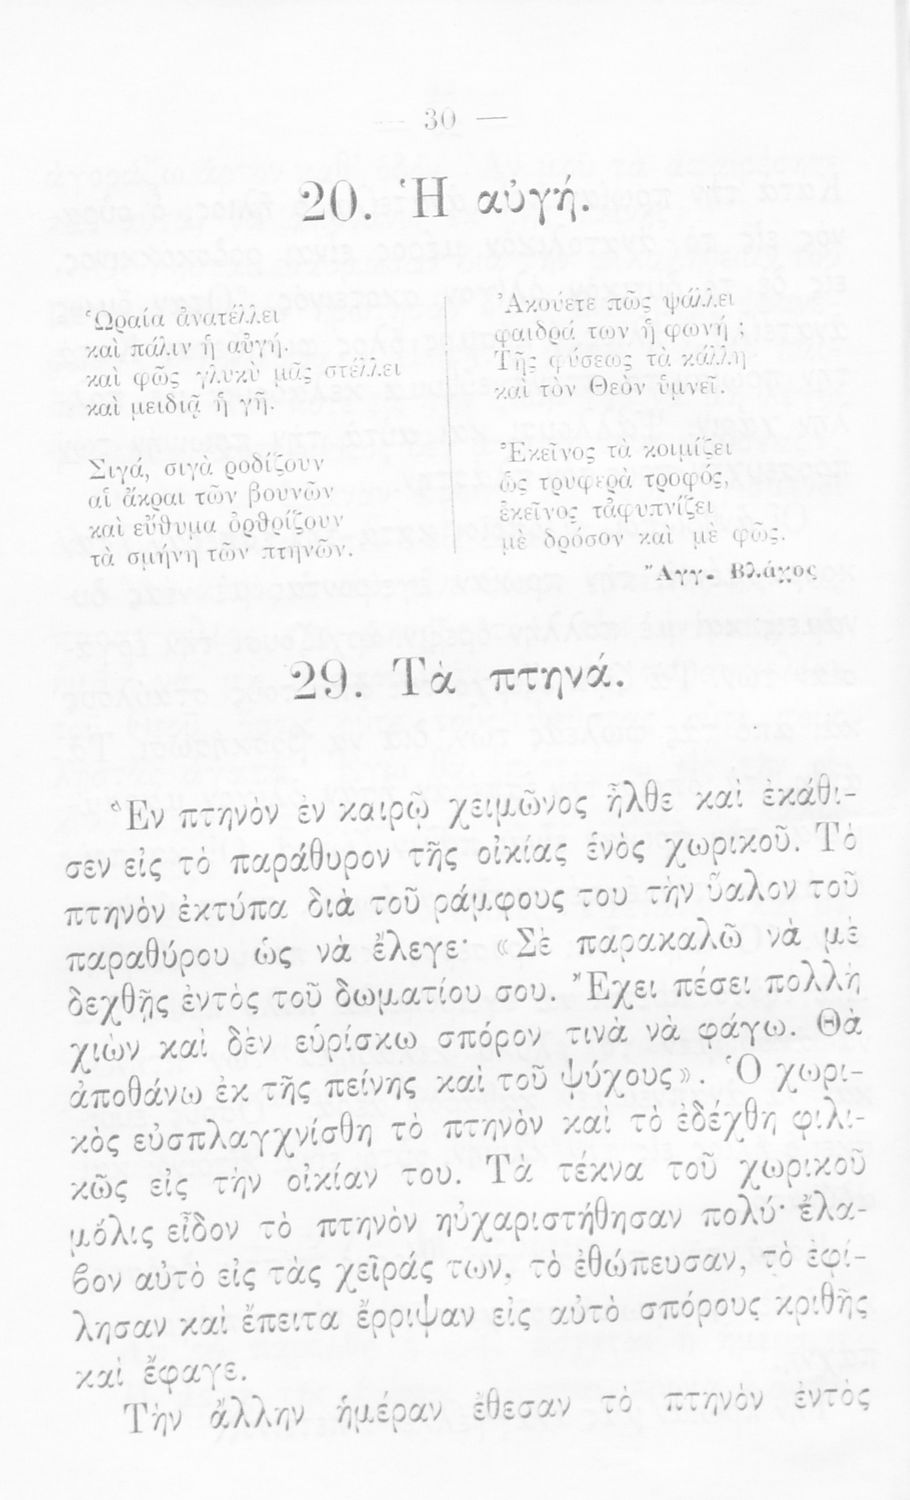 — 30 —
20. Ἡ αὐγή.
Ὡραία ἀνατέλλει
καὶ πάλιν ἡ αὐγή.
καὶ φῶς γλυκὺ μᾶς στέλλει
καὶ μειδιᾷ ἡ γῆ.
Σιγά, σιγὰ ροδίζουν
αἱ ἄκραι τῶν βουνῶν
καὶ εὔθυμα ὀρθρίζουν
τὰ σμήνη τῶν πτηνῶν.
Ἀκούετε πῶς ψάλλει
φαιδρά των ἡ φωνή ;
Τῆς φύσεως τὰ κάλλη
καὶ τὸν Θεὸν ὑμνεῖ.
Ἐκεῖνος τὰ κοιμίζει
ὡς τρυφερὰ τροφός,
ἐκεῖνος τἀφυπνίζει
μὲ δρόσον καὶ μὲ φῶς.
Ἄγγ. Βλάχος
29. Τὰ πτηνά.
Ἓν πτηνὸν ἐν καιρῷ χειμῶνος ἦλθε καὶ ἐκάθι-
σεν εἰς τὸ παράθυρον τῆς οἰκίας ἑνὸς χωρικοῦ. Τὸ
πτηνὸν ἐκτύπα διὰ τοῦ ράμφους του τὴν ὕαλον τοῦ
παραθύρου ὡς νὰ ἔλεγε· «Σὲ παρακαλῶ νὰ μὲ
δεχθῇς ἐντὸς τοῦ δωματίου σου. Ἔχει πέσει πολλὴ
χιὼν καὶ δὲν εὑρίσκω σπόρον τινὰ νὰ φάγω. Θὰ
ἀποθάνω ἐκ τῆς πείνης καὶ τοῦ ψύχους». Ὁ χωρι-
κὸς εὐσπλαγχνίσθη τὸ πτηνὸν καὶ τὸ ἐδέχθη φιλι-
κῶς εἰς τὴν οἰκίαν του. Τὰ τέκνα τοῦ χωρικοῦ
μόλις εἶδον τὸ πτηνὸν ηὐχαριστήθησαν πολύ· ἔλα-
βον αὐτὸ εἰς τὰς χεῖράς των, τὸ ἐθώπευσαν, τὸ ἐφί-
λησαν καὶ ἔπειτα ἔρριψαν εἰς αὐτὸ σπόρους κριθῆς
καὶ ἔφαγε.
Τὴν ἄλλην ἡμέραν ἔθεσαν τὸ πτηνὸν ἐντὸς